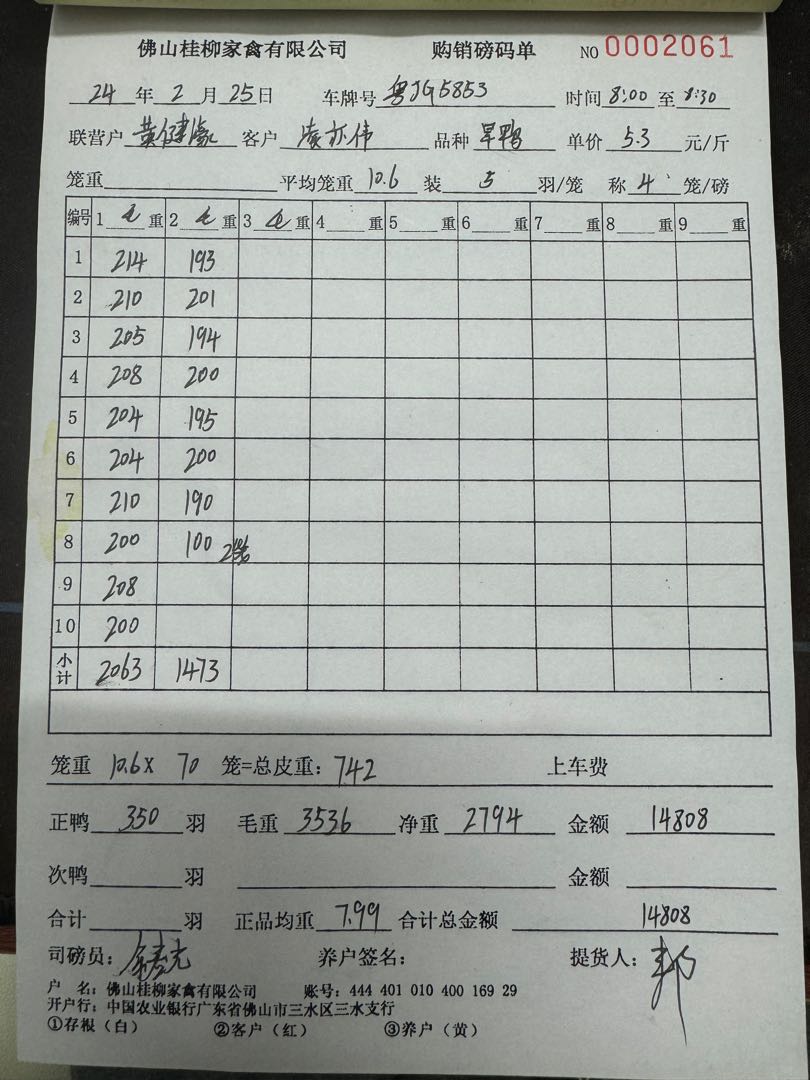 佛山桂柳家禽有限公司 购销磅码单 NO 0002061
24 年 2 月 25 日 车牌号 粤JG5853 时间 8:00 至 8:30
联营户 黄健濠 客户 凌亦伟 品种 旱鸭 单价 5.3 元/斤
笼重 平均笼重 10.6 装 5 羽/笼 称 4 笼/磅
编号 1 毛 重 2 毛 重 3 毛 重 4 重 5 重 6 重 7 重 8 重 9 重
1 214 193
2 210 201
3 205 194
4 208 200
5 204 195
6 204 200
7 210 190
8 200 100 2笼
9 208
10 200
小计 2063 1473
笼重 10.6 x 70 笼=总皮重: 742 上车费
正鸭 350 羽 毛重 3536 净重 2794 金额 14808
次鸭 羽 金额
合计 羽 正品均重 7.99 合计总金额 14808
司磅员: 养户签名: 提货人:
户 名: 佛山桂柳家禽有限公司 账号: 444 401 010 400 169 29
开户行: 中国农业银行广东省佛山市三水区三水支行
①存根(白) ②客户(红) ③养户(黄)